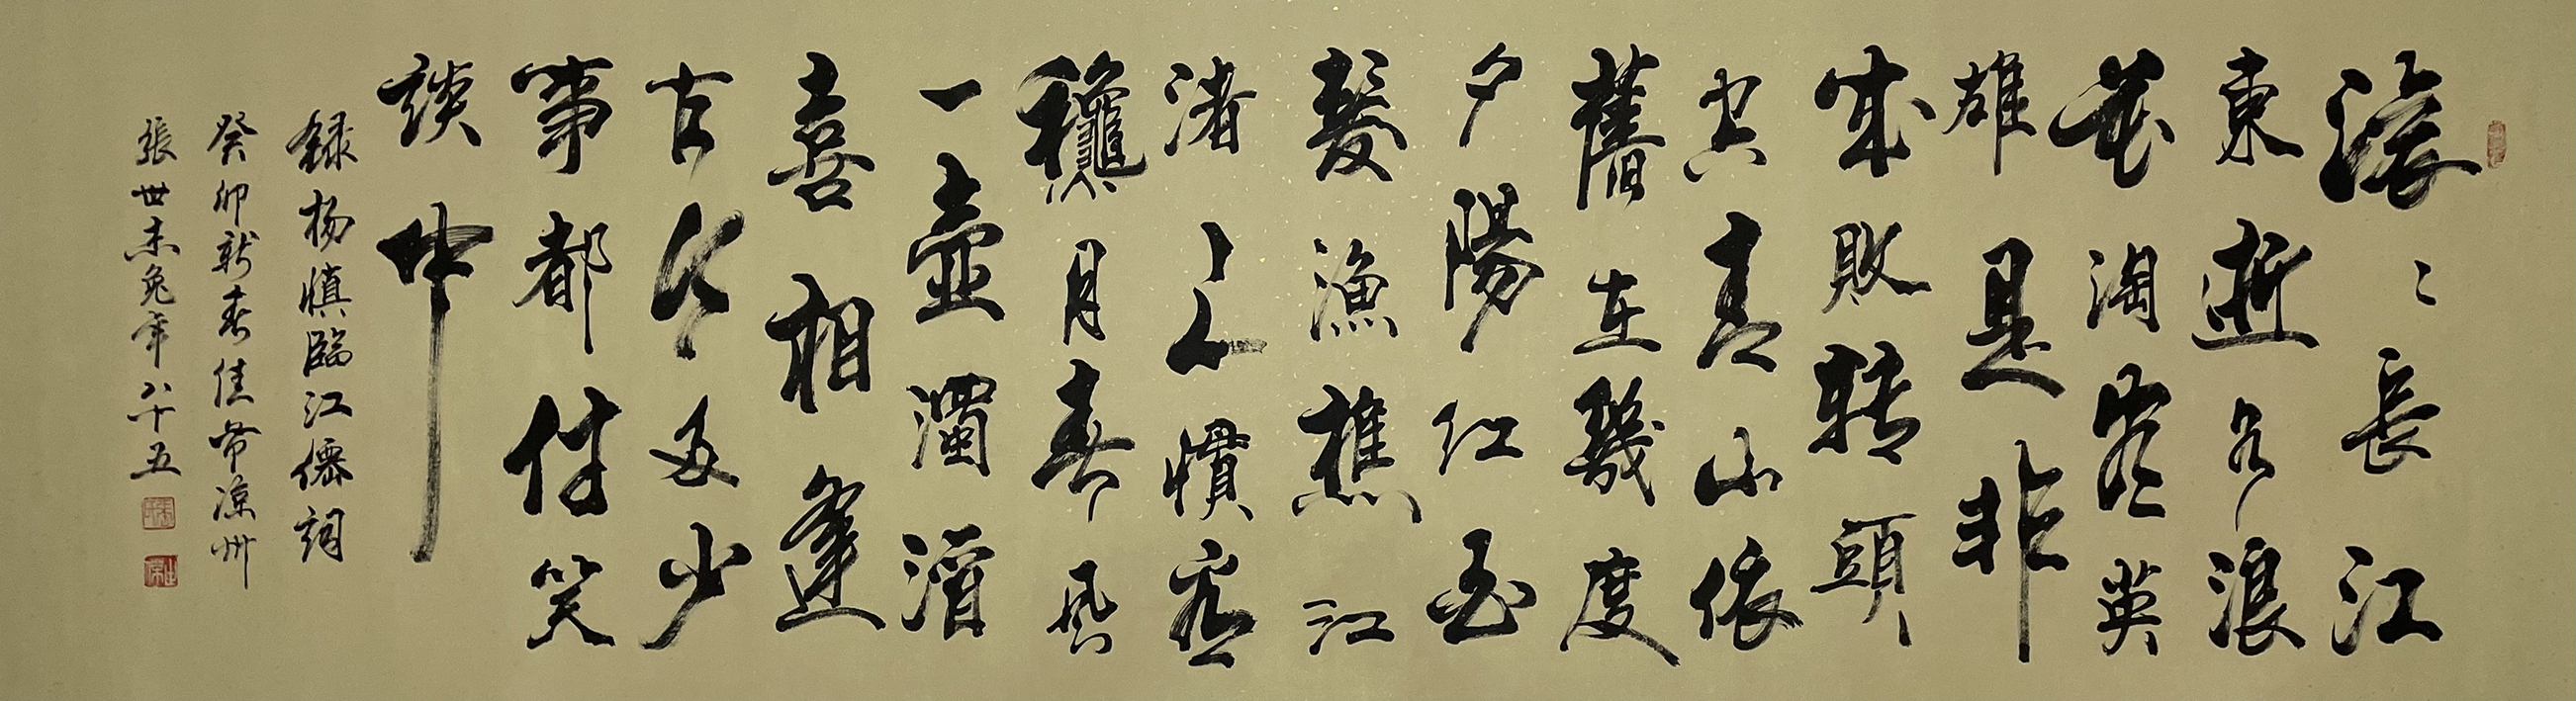 滚〻長江
東逝水浪
花淘尽英
雄是非
成敗转頭
空青山依
舊在幾度
夕陽红白
髮漁樵江
渚上慣看
穐月春風
一壺濁酒
喜相逢
古今多少
事都付笑
談中
録杨慎臨江僊詞
癸卯新春佳節凉州
張世兔年八十五